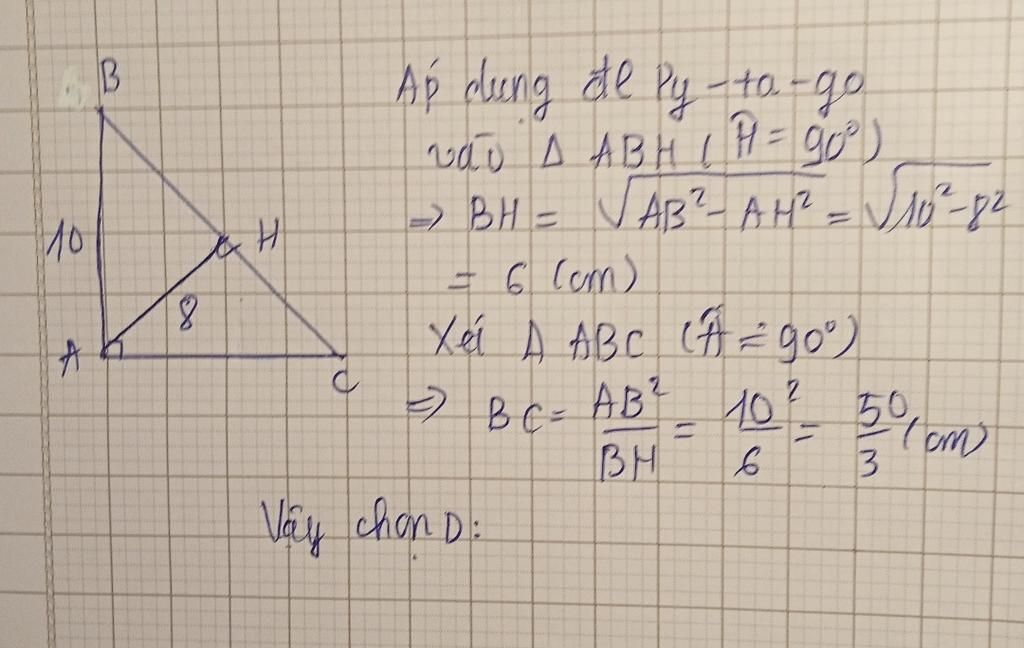 B
10
H
8
A
C
Áp dụng đl Py-ta-go
vào Δ ABH ( Ĥ = 90°)
=> BH = √AB² - AH² = √10² - 8²
= 6 (cm)
Xét Δ ABC (Â = 90°)
=> BC = AB²/BH = 10²/6 = 50/3 (cm)
Vậy chọn D: